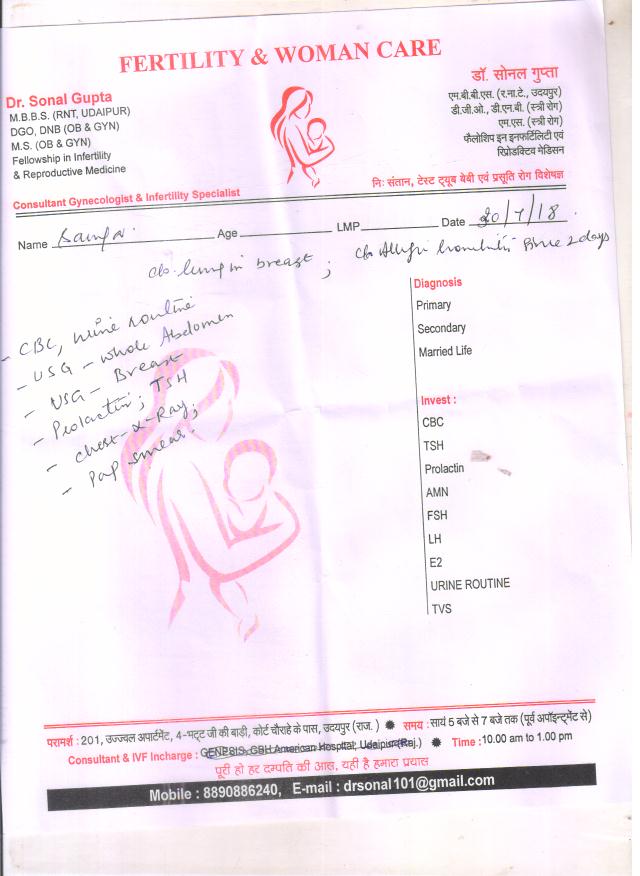 FERTILITY & WOMAN CARE
Dr. Sonal Gupta
M.B.B.S. (RNT, UDAIPUR)
DGO, DNB (OB & GYN)
M.S. (OB & GYN)
Fellowship in Infertility
& Reproductive Medicine
Consultant Gynecologist & Infertility Specialist
डॉ. सोनल गुप्ता
एम.बी.बी.एस. (र.ना.टे., उदयपुर)
डी.जी.ओ., डी.एन.बी. (स्त्री रोग)
एम.एस. (स्त्री रोग)
फैलोशिप इन इनफर्टिलिटी एवं
रिप्रोडक्टिव मेडिसन
निः संतान, टेस्ट ट्यूब बेबी एवं प्रसूति रोग विशेषज्ञ
Name Age LMP Date 20/7/18
c/o lump in breast ; c/o 2 days
- CBC, urine routine
- USG - whole Abdomen
- USG - Breast
- Prolactin; TSH
- chest-x-Ray;
- Pap smear.
Diagnosis
Primary
Secondary
Married Life
Invest :
CBC
TSH
Prolactin
AMN
FSH
LH
E2
URINE ROUTINE
TVS
परामर्श : 201, उज्ज्वल अपार्टमेंट, 4-भट्ट जी की बाडी, कोर्ट चौराहे के पास, उदयपुर (राज.) समय : सायं 5 बजे से 7 बजे तक (पूर्व अपॉइन्ट्मेंट से)
Consultant & IVF Incharge : GENESIS-GBH American Hospital, Udaipur (Raj.) Time : 10.00 am to 1.00 pm
पूरी हो हर दम्पति की आस, यही है हमारा प्रयास
Mobile : 8890886240, E-mail : drsonal101@gmail.com